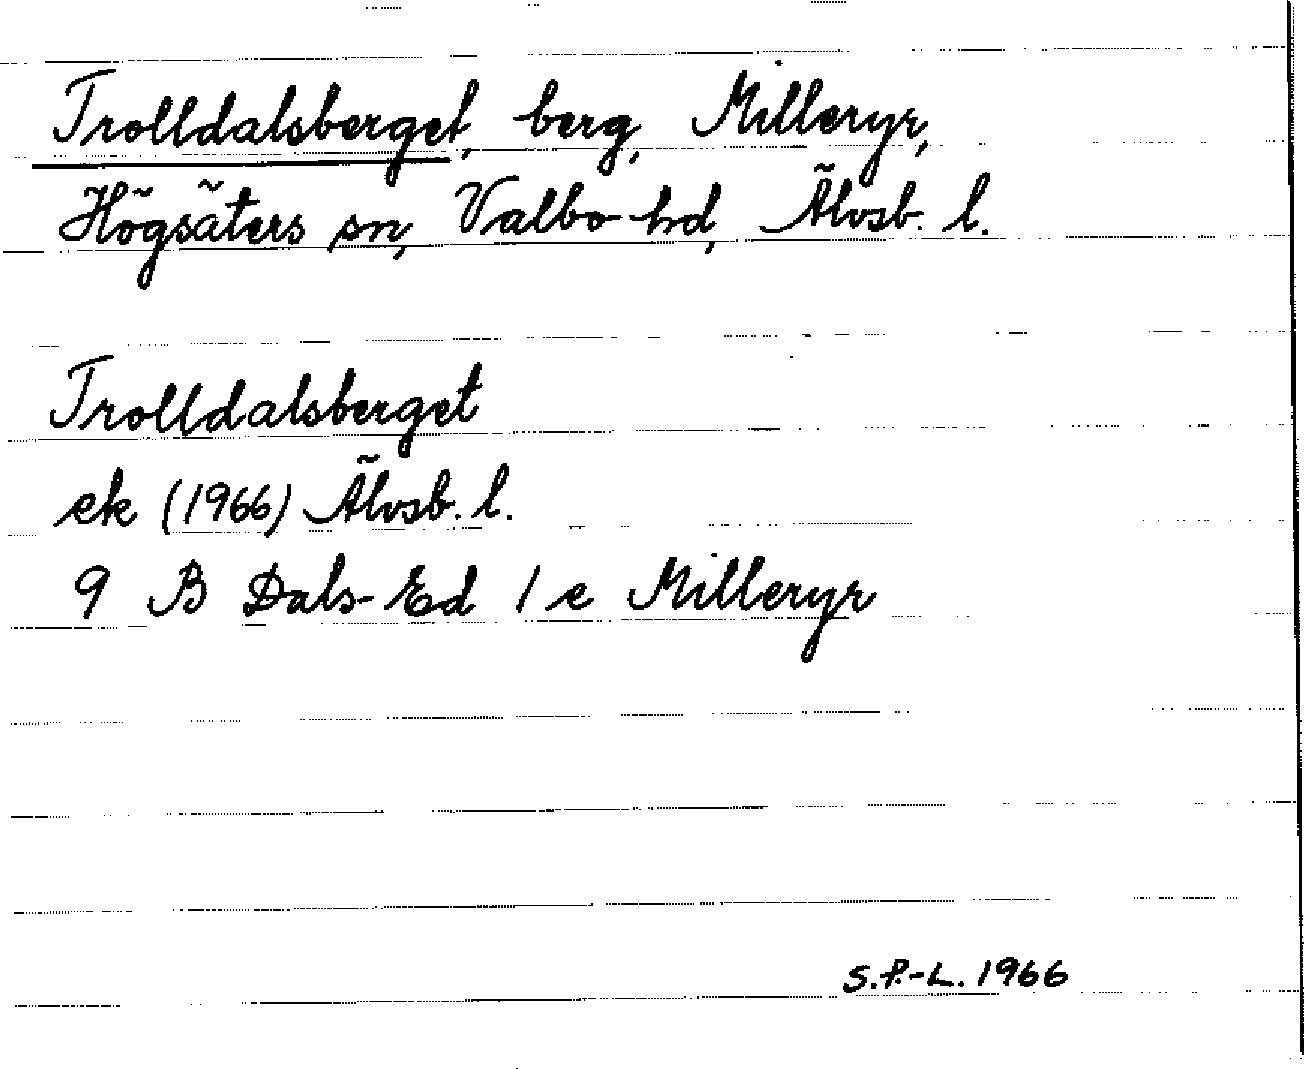 Trolldalsberget, berg, Milleryr,
Högsäters sn, Valbo hd, Älvsb. l.
Trolldalsberget
ek (1966) Älvsb. l.
9 B Dals-Ed 1 e Milleryr
S.P.-L. 1966